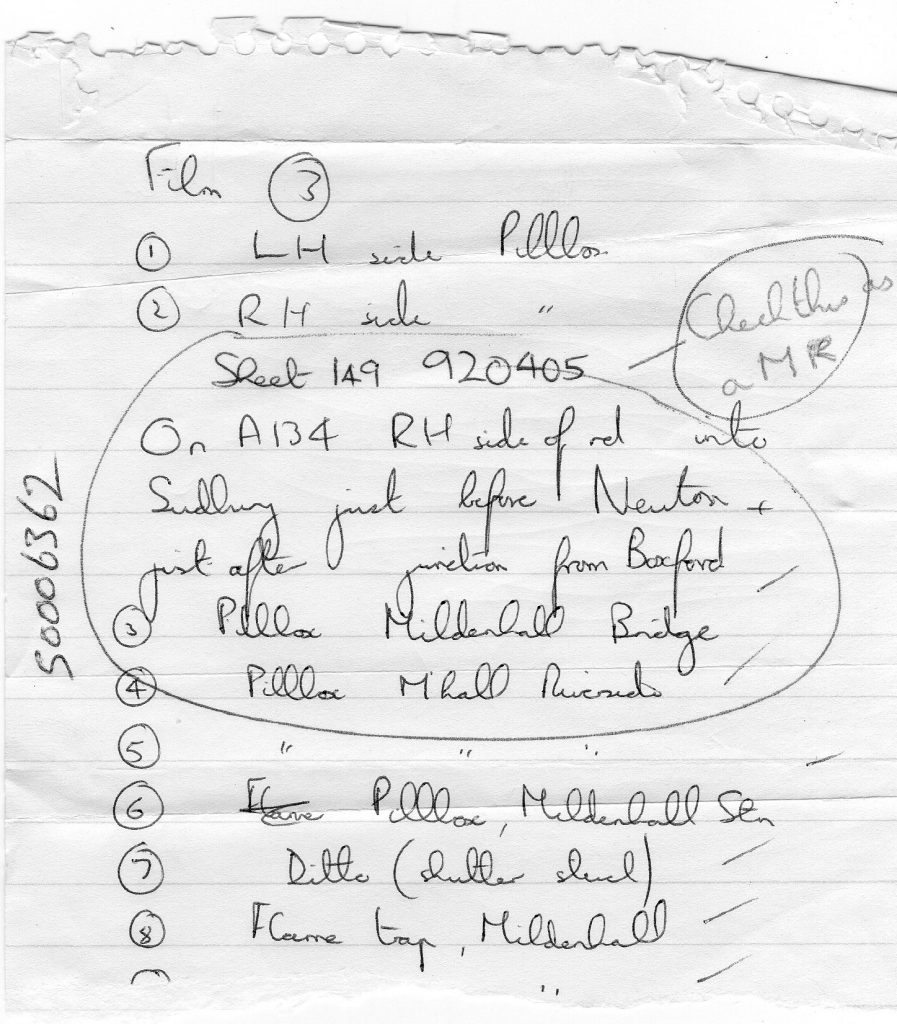 Film ③
① LH side Pillbox
② RH side "
Check this as
a MR
Sheet 149 920405
On A134 RH side of rd into
Sudbury just before Newton +
just after junction from Boxford
③ Pillbox Mildenhall Bridge
④ Pillbox M'hall Riverside
⑤ " " "
⑥ Flame Pillbox, Mildenhall Stn
⑦ Ditto (shutter stuck)
⑧ Flame trap, Mildenhall
"
5006362